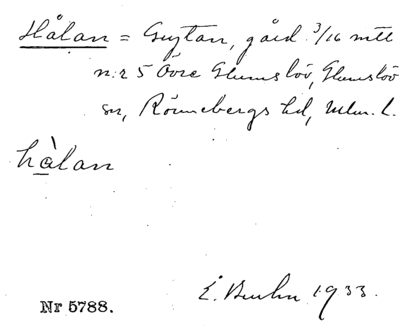 Hålan = Grytan, gård 3/16 mtl
n:r 5 Övre Glumslöv, Glumslöv
sn, Rönnebergs hd, Mlm. l.
hàlan
Nr 5788.
1933.